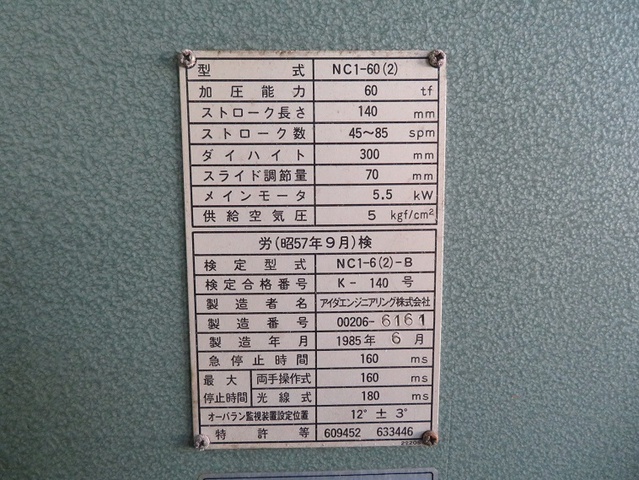 型式 NC1-60(2)
加圧能力 60 tf
ストローク長さ 140 mm
ストローク数 45～85 spm
ダイハイト 300 mm
スライド調節量 70 mm
メインモータ 5.5 kW
供給空気圧 5 kgf/cm²
労(昭57年9月)検
検定型式 NC1-6(2)-B
検定合格番号 K- 140 号
製造者名 アイダエンジニアリング株式会社
製造番号 00206-6161
製造年月 1985年 6月
急停止時間 160 ms
最大停止時間 両手操作式 160 ms
光線式 180 ms
オーバラン監視装置設定位置 12° ± 3°
特許等 609452 633446